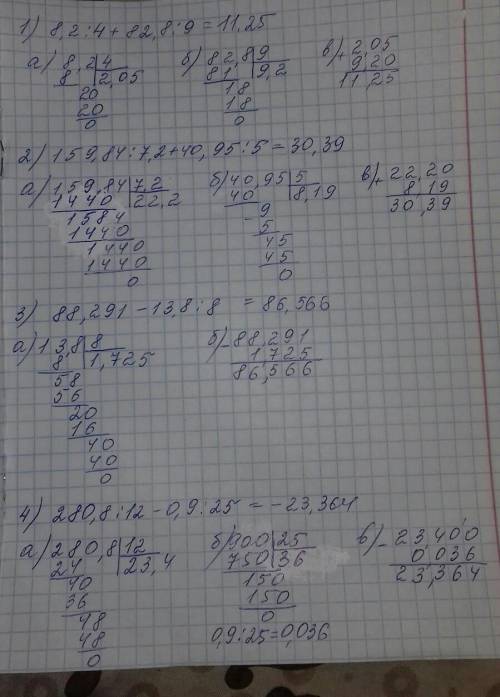 1) 8,2:4+82,8:9=11,25
а) 8,2|4 б) 82,8|9 в) +2,05
8 |2,05 81 |9,2 9,20
20 18 11,25
20 18
0 0
2) 159,84:7,2+40,95:5=30,39
а) 159,84|7,2 б) 40,95|5 в) +22,20
1440 |22,2 40 |8,19 8,19
1584 9 30,39
1440 5
1440 45
1440 45
0 0
3) 88,291-13,8:8 =86,566
а) 13,8|8 б) -88,291
8 |1,725 1,725
58 86,566
56
20
16
40
40
0
4) 280,8:12-0,9:25=-23,364
а) 280,8|12 б) 900|25 в) -23,400
24 |23,4 750|36 0,036
40 150 23,364
36 150
48 0
48 0,9:25=0,036
0